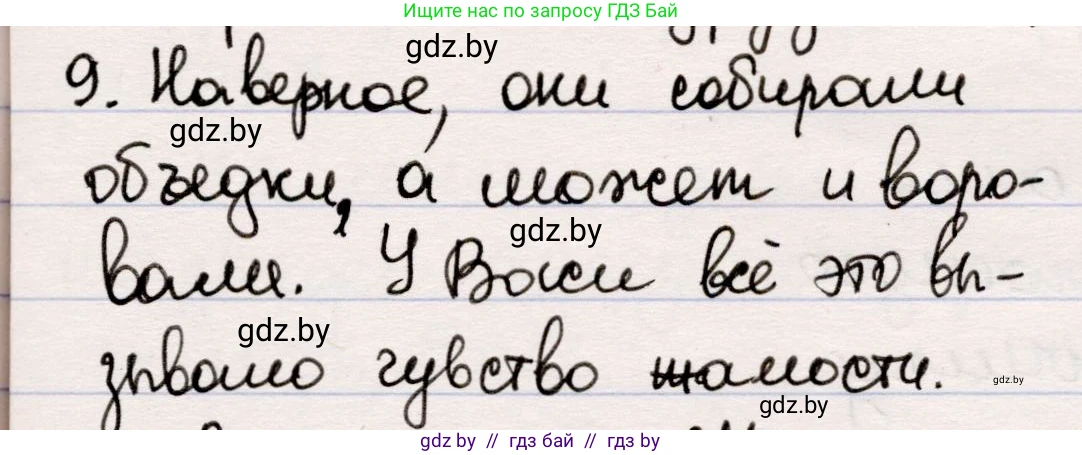 Ищите нас по запросу ГДЗ Бай
gdz.by
9. Наверное, они собирали
gdz.by
объедки, а может и воро-
gdz.by
вали. У Васи всё это вы-
gdz.by
зывало чувство жалости.
gdz.by
gdz.by
gdz by // гдз бай // гдз by